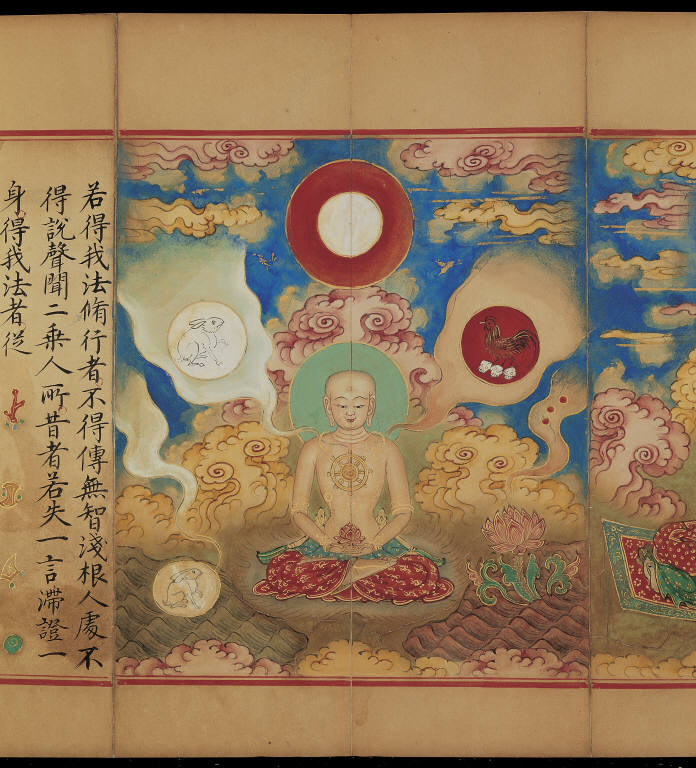 若得我法脩行者不得傳無智淺根人處不
得説聲聞二乗人所昔者若失一言滯證一
身得我法者從